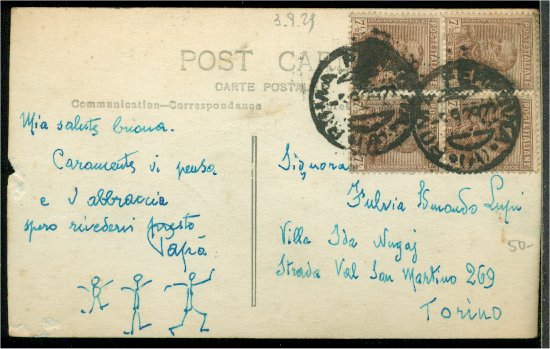 3.9.29
POST CARD
CARTE POSTALE
Communication—Correspondance
Mia salute buona.
Caramente vi pensa
e v'abbraccia
spero rivedervi presto
Papà
Signora
Fulvia Lupi
Villa Ida
Strada Val San Martino 269
Torino
POSTE ITALIANE
POSTE ITALIANE
ROMA
ROMA
50-